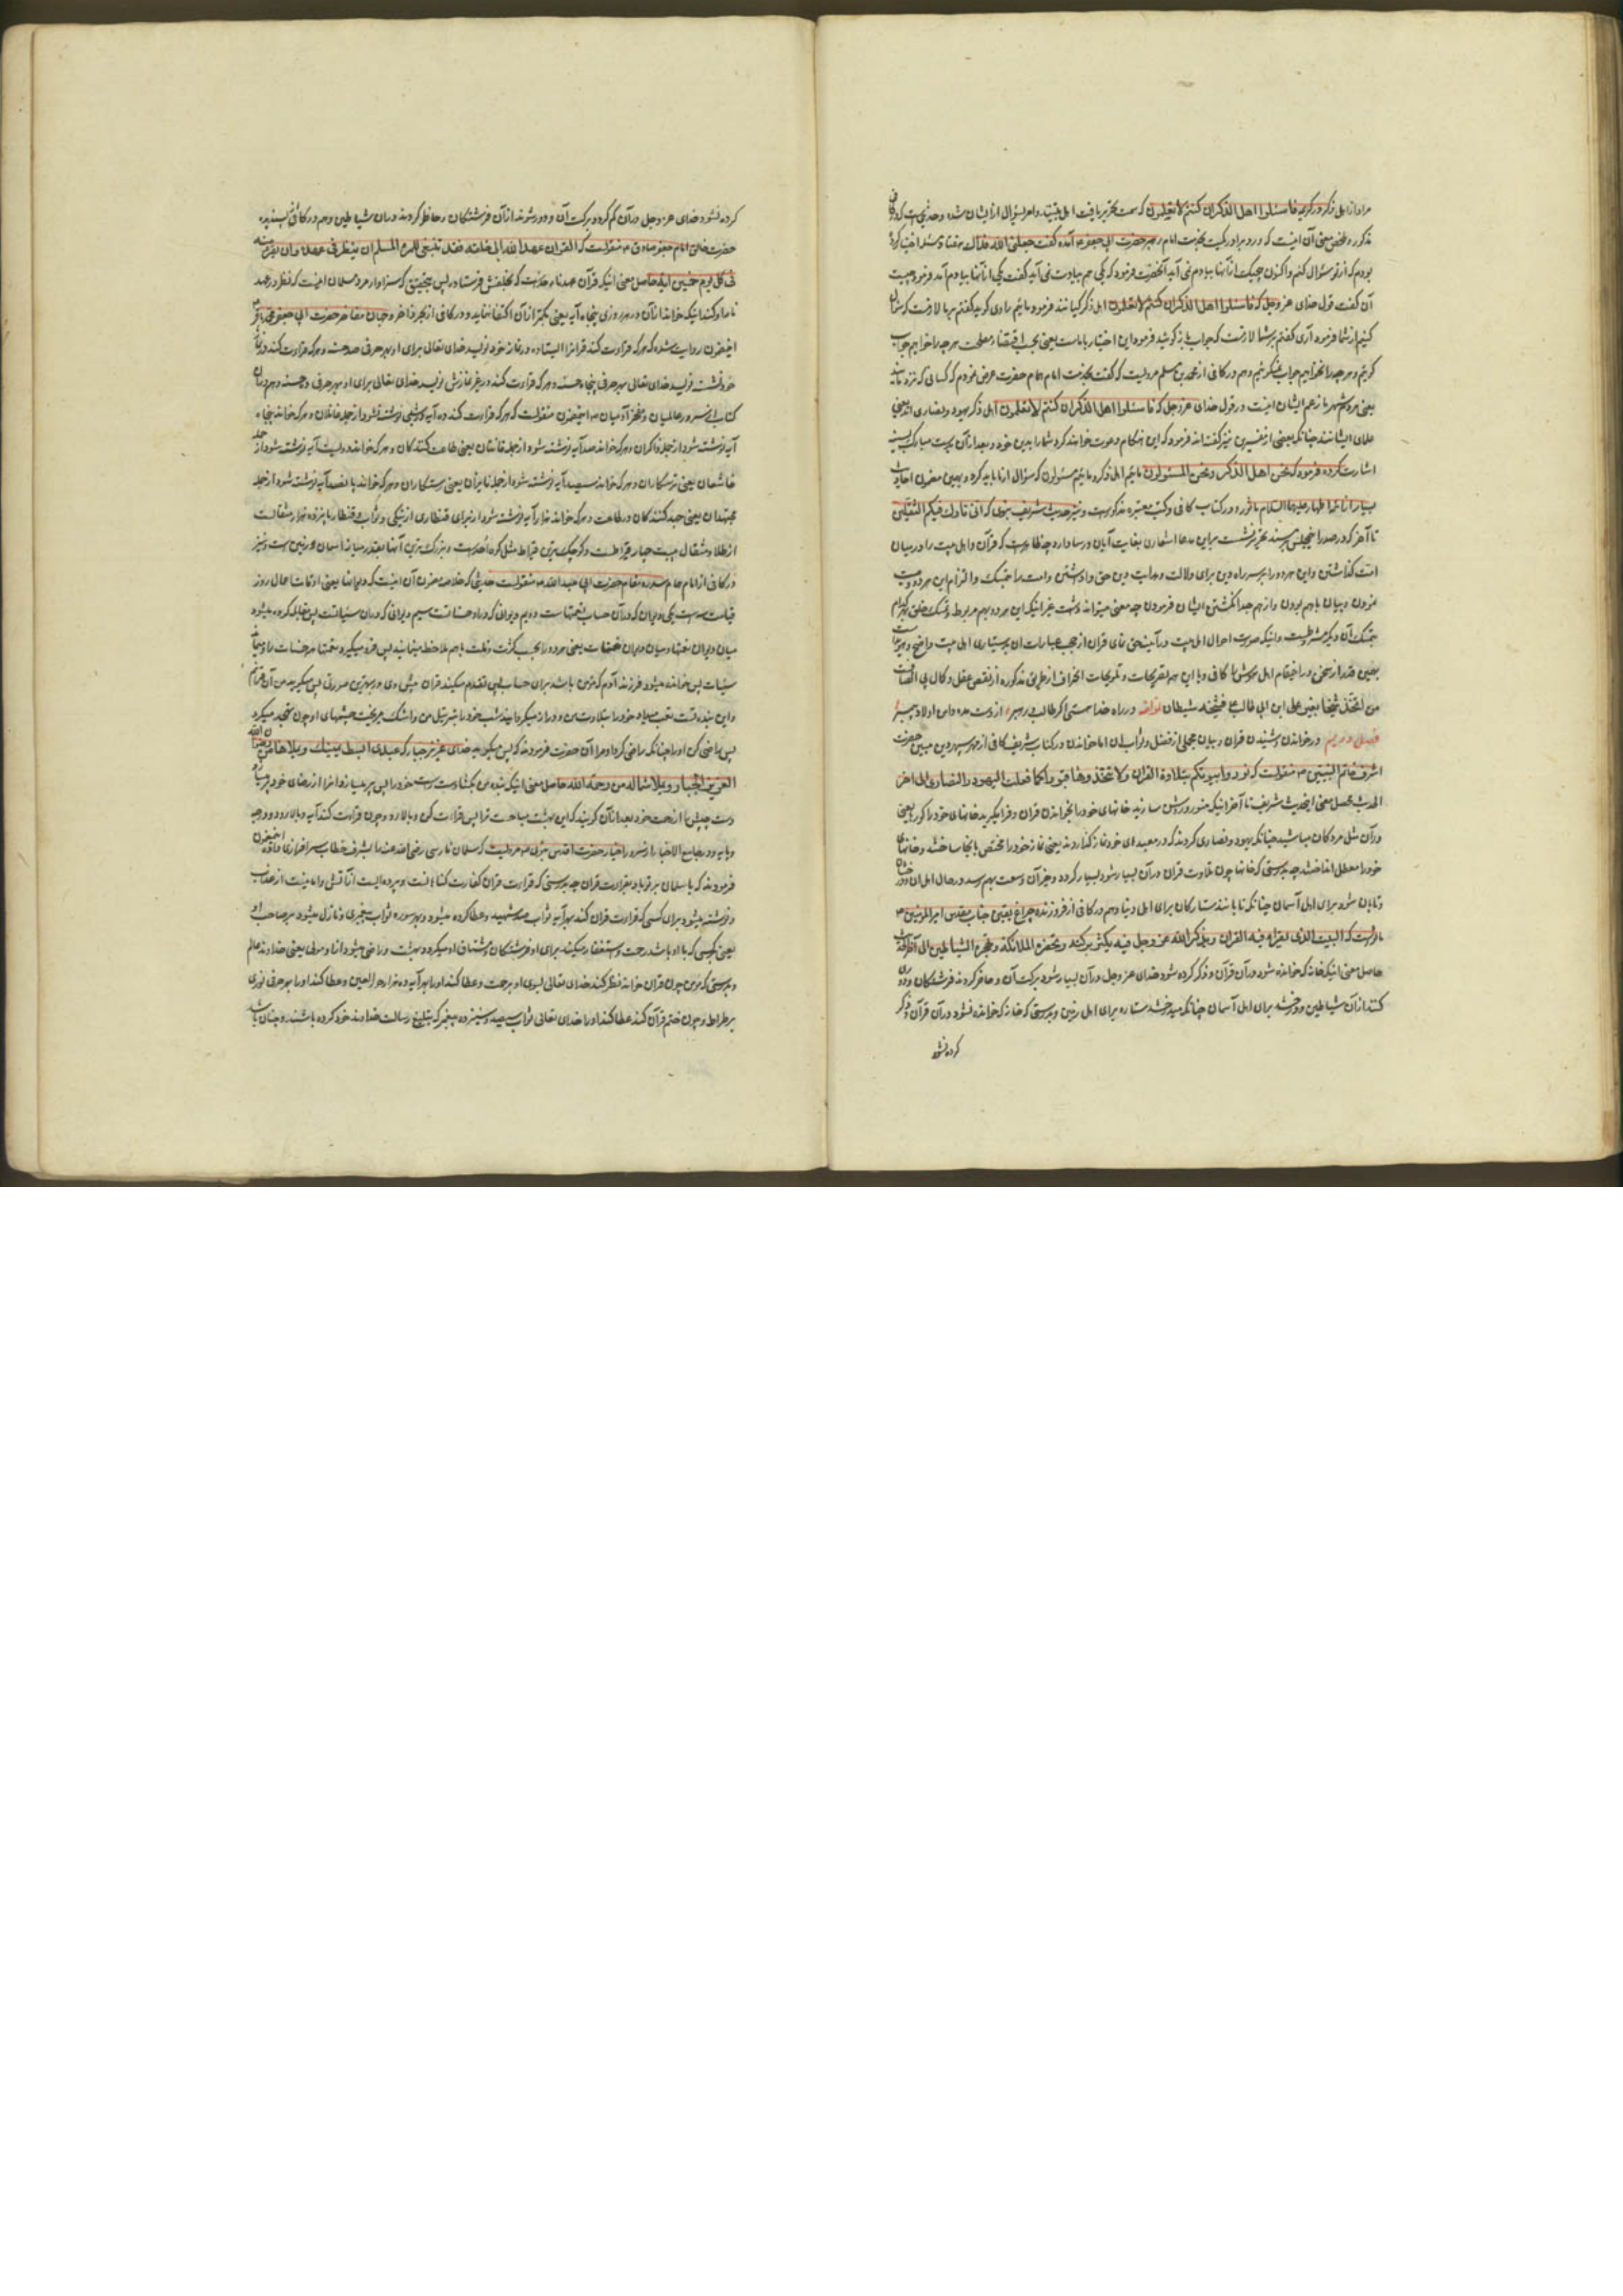 مراد از اهل ذکر در کریمه فاسئلوا اهل الذکر ان کنتم لا تعلمون که سمت تحریر یافت اهل بیتند و امر بسؤال از ایشان شده و حدیثی که در کافی
مذکور و ملخص معنی آن اینست که ورد برادر کمیت بخدمت امام حضرت ابی جعفر ع آمده گفت جعلنی الله فداک هفتاد مسئله اختیار کرده
بودم که از تو سؤال کنم و اکنون یک از آنها بیادم نمی آید آنحضرت فرمود که یکی هم بیادت نمی آید گفت یکی از آنها بیادم آمد فرمود چیست
آن گفت قول خدای عز و جل که فاسئلوا اهل الذکر ان کنتم لا تعلمون اهل ذکر کیانند فرمود مائیم راوی گوید گفتم بر ما لازمست که از شما سؤال
کنیم از شما فرمود آری گفتم بر شما لازمست که جواب ما بگوئید فرمود این اختیار با ماست یعنی بحسب اقتضاء مصلحت هر چه را خواهیم جواب
گوئیم و هر چه را نخواهیم جواب نمیگوئیم و هم در کافی از محمد بن مسلم مرویست که گفت بخدمت امام همام حضرت عرض نمودم که کسانی که نزد مایند
یعنی مردم شهر ما زعم ایشان اینست در قول خدای عز و جل که فاسئلوا اهل الذکر ان کنتم لا تعلمون اهل ذکر یهود و نصاری اند یعنی
علمای ایشانند چنانکه بعضی از مفسرین نیز گفته اند فرمود که این هنگام دعوت خواهند کرد شما را بدین خود و بعد از آن بدست مبارک بسینه
اشارت کرده فرمود که نحن اهل الذکر و نحن المسئولون مائیم اهل ذکر و مائیم مسئولون که سؤال از ما باید کرد و بهمین مضمون احادیث
بسیار از ائمه اطهار علیهم السلام ماثور و در کتاب کافی و کتب معتبره مذکورست و نیز حدیث شریف نبوی که انی تارک فیکم الثقلین
تا آخر که در صدر اینمجلس تحریر نوشت براین مدعا اشعاری بغایت آیان و رسا دارد چه ظاهرست که قرآن و اهل بیت را در میان
امت گذاشتن و این هر دو را بر سر راه دین برای دلالت و هدایت دین حق واداشتن و امت را تمسک و التزام این هر دو وصیت
نمودن و بیان با هم بودن و از هم جدا نگشتن ایشان فرمودن چه معنی میتواند داشت غیر از اینکه این هر دو بهم مربوط و تمسک خلق بهر کدام
بتمسک آن دیگر مشروطست و اینکه صورت احوال اهل بیت در آیینه حق نمای قرآن از حجب عبارات آن بدستیاری اهل بیت واضح
بهمین قدر از سخن در اینمقام اهل هوش را کافی و با این همه تصریحات و تلویحات انحراف از طریق مذکوره از نقص عقل و کمال بی انصافیست
من اتخذ شیخا بغیر علی ابن ابی طالب ع فشیخه شیطان لمؤلفه در راه خدا هستی اگر طالب رهبر از دست مده دامن اولاد پیمبر
فصل دویم در خواندن و شنیدن قرآن و بیان مجملی از فضل و ثواب آن اما خواندن در کتاب شریف کافی از مهر سپهر دین مبین حضرت
اشرف خاتم النبیین ص منقولست که نوروا بیوتکم بتلاوة القرآن ولا تتخذوها قبورا کما فعلت الیهود والنصاری الی آخر
الحدیث محصل معنی اینحدیث شریف تا آخر اینکه منور و روشن سازید خانهای خود را بخواندن قرآن و فرا مگیرید خانهای خود را گور یعنی
در آن مثل مردگان مباشید چنانکه یهود و نصاری کردند که در معبدهای خود نماز گذاردند یعنی نماز خود را مختص بآنجا ساخته و خانهای
خود را معطل انداختند چه بدرستی که خانها چون تلاوت قرآن در آن بسیار شود بسیار گردد و خیر آن وسعت بهم رسد در حال اهل آن و درخشان
و تابان شود برای اهل آسمان چنانکه تابانند ستارگان برای اهل دنیا و هم در کافی از فروزنده چراغ یقین جناب مقدس امیر المؤمنین ع
ماثورست که البیت الذی یقرء فیه القرآن و یذکر الله عز و جل فیه یکثر برکته و تحضره الملائکة و تهجره الشیاطین الی آخر الحدیث
حاصل معنی اینکه خانه که خوانده شود در آن قرآن و ذکر کرده شود خدای عز و جل در آن بسیار شود برکت آن و حاضر گردند فرشتگان و دوری
کنند از آن شیاطین و درخشد برای اهل آسمان چنانکه میدرخشد ستاره برای اهل زمین و بدرستی که خانه که خوانده نشود در آن قرآن و ذکر
کرده نشود
کرده نشود خدای عز و جل در آن کم گردد برکت آن و دور شوند از آن فرشتگان و حاضر گردند در آن شیاطین و هم در کافی بسند
حضرت امام جعفر صادق ع منقولست که القرآن عهد الله الی خلقه فقد ینبغی للمرء المسلم ان ینظر فی عهده و ان یقرء منه
فی کل یوم خمسین آیة حاصل معنی اینکه قرآن عهدنامه خداست که بخلقش فرستاد پس بتحقیق که سزاوار مرد مسلمان اینست که نظر در عهد
نامه او کند و اینکه خواند از آن در هر روزی پنجاه آیه یعنی بکمتر از آن اکتفا ننماید و در کافی از حضرت ابی جعفر محمد باقر ع
اینمضمون روایت شده که هر که قرائت کند قرآن را ایستاده در نماز خود نویسد خدای تعالی برای او بهر حرفی صد حسنه و هر که قرائت کند در نماز
خود نشسته نویسد خدای تعالی بهر حرفی پنجاه حسنه و هر که قرائت کند در غیر نمازش نویسد خدای تعالی برای او بهر حرفی ده حسنه و هم در آن
کتاب از سرور عالمیان و مفخر آدمیان ص اینمضمون منقولست که هر که قرائت کند ده آیه در شبی نوشته نشود از جمله غافلان و هر که خواند پنجاه
آیه نوشته شود از جمله ذاکران و هر که خواند صد آیه نوشته شود از جمله قانتان یعنی طاعت کنندگان و هر که خواند دویست آیه نوشته شود از جمله
خاشعان یعنی ترسکاران و هر که خواند سیصد آیه نوشته شود از جمله فایزان یعنی رستگاران و هر که خواند پانصد آیه نوشته شود از جمله
مجتهدان یعنی جهد کنندگان در طاعت و هر که خواند هزار آیه نوشته شود از برای قنطاری از نیکی و ثواب و قنطار پانزده هزار مثقالست
از طلا و مثقال بیست و چهار قیراطست و کوچکترین قیراط مثل کوه احدست و بزرگترین آنها بقدر میانه آسمان و زمین ست و نیز
در کافی از امام حضرت ابی عبد الله ع منقولست حدیثی که خلاصه مضمون آن اینست که دیوانها یعنی اوقات اعمال روز
قیامت سه است یکی دیوان که در آن حساب نعمتهاست و دویم دیوانی که در او حسناتست سیم دیوانی که در آن سیئاتست پس مقابله کرده میشود
میان دیوان نعمتها و میان دیوان حسنات یعنی هر دو را بحسب کثرت و قلت با هم ملاحظه مینمایند پس فرو میگیرد نعمتها هر حسنات را و میماند
سیئات پس خوانده میشود فرزند آدم که مؤمن باشد برای حساب پس تقدم میکند قرآن پیش وی در بهترین صورتی پس میگوید من آن قرآنم
و این بنده تست تعب میداد خود را بتلاوت من و دراز میکرد شب خود را بترتیل من و اشک میریخت چشمهای او چون تهجد میکرد
پس راضی کن او را چنانکه راضی کرد او مرا آن حضرت فرمودند که پس میگوید خدای عزیز جبار که عبدی ابسط یمینک فیملأها من رضوان الله
العزیز الجبار و یملأ شماله من رحمة الله حاصل معنی اینکه بنده من بگشا دست راست خود را پس پر میسازد آنرا از رضای خود و پر میسازد
دست چپش را از رحمت خود بعد از آن گویند که این بهشت مباحست ترا پس قرائت کن و بالا رو و چون قرائت کند آیه بالا رود درجه
و پایه و در جامع الاخبار از حضرت اقدس نبوی ص مرویست که سلمان فارسی رضی الله عنه را بشرف خطاب سرافرازی داده اینمضمون
فرمودند که یا سلمان بر تو باد بقرائت قرآن چه بدرستی که قرائت قرآن کفارت گناهانست و پرده ایست از آتش و امانیست از عذاب
و نوشته میشود برای کسی که قرائت قرآن کند بهر آیه ثواب صد شهید و عطا کرده میشود بهر سوره ثواب پیغمبری و نازل میشود بر صاحب او
یعنی کسی که با او باشد رحمت و استغفار میکنند برای او فرشتگان و مشتاق او میگردد بهشت و راضی میشود از او مولی یعنی خداوند عالم
و بدرستی که مؤمن چون قرآن خواند نظر کند خدای تعالی بسوی او برحمت و عطا کند او را بهر آیه هزار حور العین و عطا کند او را بهر حرفی نوری
بر صراط و چون ختم قرآن کند عطا کند او را خدای تعالی ثواب سیصد و سیزده پیغمبر که تبلیغ رسالت خداوند خود کرده باشند و چنان باشد